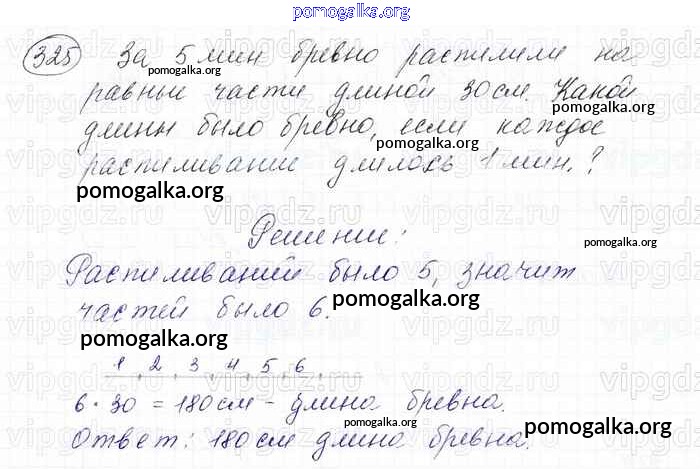 pomogalka.org
325 За 5 мин бревно распилили на
pomogalka.org
равные части длиной 30 см. Какой
pomogalka.org
длины было бревно, если каждое
распиливание длилось 1 мин.?
pomogalka.org
Решение:
pomogalka.org
Распиливаний было 5, значит
частей было 6.
pomogalka.org
pomogalka.org
1 2 3 4 5 6
6 · 30 = 180 см - длина бревна.
pomogalka.org
Ответ: 180 см длина бревна.
pomogalka.org